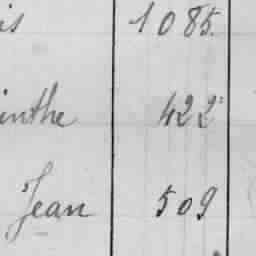 is 1085.
inthe 422
Jean 509